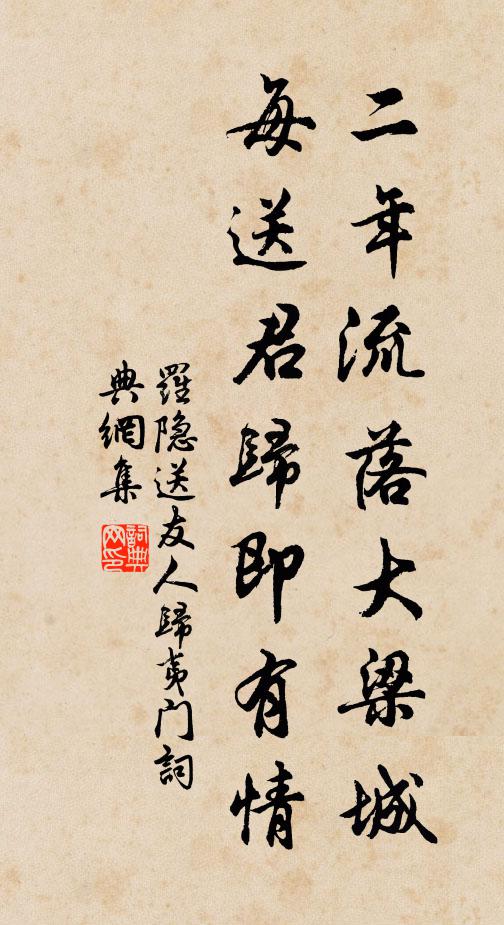 二年流落大梁城
每送君歸即有情
羅隐送友人歸夷門詞
典網集
詞典网印